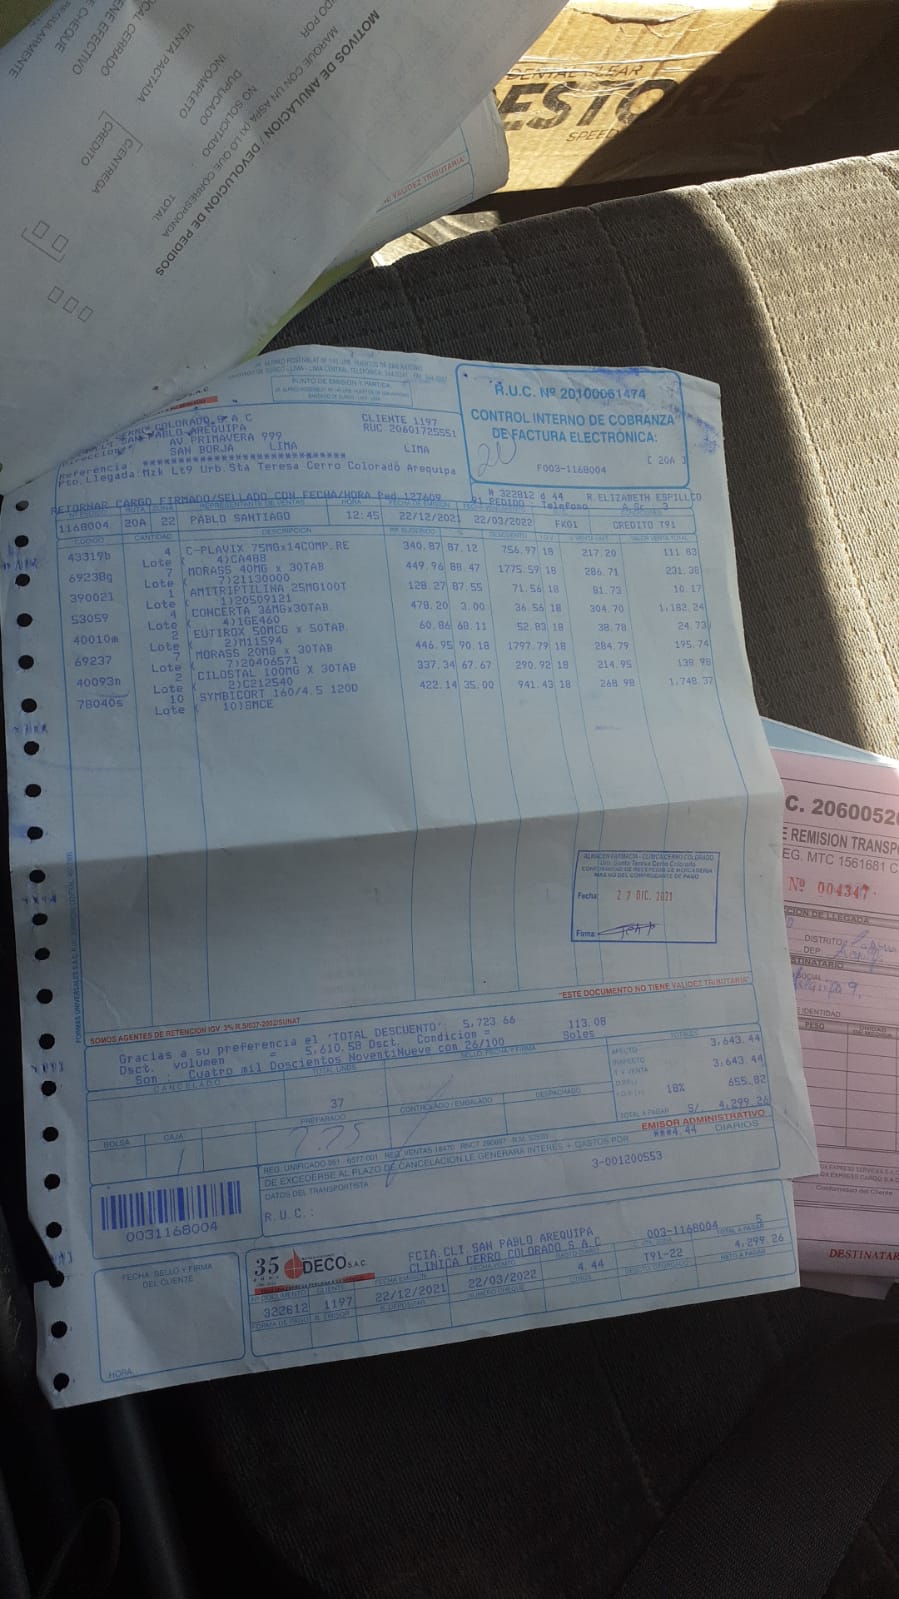 MOTIVOS DE ANULACION / DEVOLUCION DE PEDIDOS
MARQUE CON UN ASPA (X) LO QUE CORRESPONDA
NO SOLICITADO
DUPLICADO
INCOMPLETO
VENTA PACTADA
TOTAL
ENTREGA
CREDITO
VALIDEZ TRIBUTARIA"
PUNTO DE EMISION Y PARTIDA
R.U.C. Nº 20100061474
CONTROL INTERNO DE COBRANZA
DE FACTURA ELECTRÓNICA:
F003-1168004 ( 20A )
COLORADO S A C
CLI SAN PABLO AREQUIPA
CLIENTE 1197
RUC 20601725551
AV PRIMAVERA 999
SAN BORJA LIMA LIMA
Referencia:
Pto.Llegada:Mzk Lt9 Urb.Sta Teresa Cerro Colorado Arequipa
RETORNAR CARGO FIRMADO/SELLADO CON FECHA/HORA Ped 127609
# 322812 d 44 R.ELIZABETH ESPILLCO
1168004 20A 22 PABLO SANTIAGO 12:45 22/12/2021 22/03/2022 FK01 CREDITO T91
CODIGO CANTIDAD DESCRIPCION
43319b 4 C-PLAVIX 75MGx14COMP.RE 340.87 87.12 756.97 18 217.20 111.83
Lote ( 4)CA488
69238g 7 MORASS 40MG x 30TAB 449.96 88.47 1775.59 18 286.71 231.38
Lote ( 7)21130000
390021 1 AMITRIPTILINA 25MG100T 128.27 87.55 71.56 18 81.73 10.17
Lote ( 1)20509121
53059 4 CONCERTA 36MGx30TAB. 478.20 3.00 36.56 18 304.70 1,182.24
Lote ( 4)1GE460
40010m 2 EUTIROX 50MCG x 50TAB. 60.86 68.11 52.83 18 38.78 24.73
Lote ( 2)M11594
69237 7 MORASS 20MG x 30TAB 446.95 90.18 1797.79 18 284.79 195.74
Lote ( 7)20406571
40093n 2 CILOSTAL 100MG X 30TAB 337.34 67.67 290.92 18 214.95 138.98
Lote ( 2)C212540
78040s 10 SYMBICORT 160/4.5 120D 422.14 35.00 941.43 18 268.98 1,748.37
Lote ( 10)SMCE
ALMACEN FARMACIA - CLINICA CERRO COLORADO
Urb. Santa Teresa Cerro Colorado
CONFORMIDAD DE RECEPCION DE MERCADERIA
MAS NO DEL COMPROBANTE DE PAGO
Fecha: 27 DIC. 2021
Firma:
SOMOS AGENTES DE RETENCION IGV 3% R.S/037-2002/SUNAT
"ESTE DOCUMENTO NO TIENE VALIDEZ TRIBUTARIA"
Gracias a su preferencia el 'TOTAL DESCUENTO': 5,723.66
Dsct. volumen = 5,610.58 Dsct. Condicion = 113.08
Son : Cuatro mil Doscientos NoventiNueve con 26/100 Soles
CANCELADO TOTAL UNDS. SELLO, FECHA Y FIRMA TOTALES
37
AFECTO 3,643.44
INAFECTO
T.V VENTA 3,643.44
18% 655.82
TOTAL A PAGAR S/. 4,299.26
BOLSA CAJA PREPARADO CONTROLADO / EMBALADO DESPACHADO
EMISOR ADMINISTRATIVO
DE EXCEDERSE AL PLAZO DE CANCELACION LE GENERARA INTERES + GASTOS POR ***4.44 DIARIOS
DATOS DEL TRANSPORTISTA 3-001200553
R.U.C.:
0031168004
FECHA, SELLO Y FIRMA
DEL CLIENTE
HORA
35 DECO S.A.C.
FCIA.CLI SAN PABLO AREQUIPA
CLINICA CERRO COLORADO S.A.C
003-1168004 5
322612 1197 22/12/2021 22/03/2022 4.44 T91-22 4,299.26
ESTORE
SPEED
C. 2060052
E REMISION TRANSP
EG. MTC 1561681 C
Nº 004347
DISTRITO:
DEP.
PESO
Conformidad del Cliente
DESTINATAR